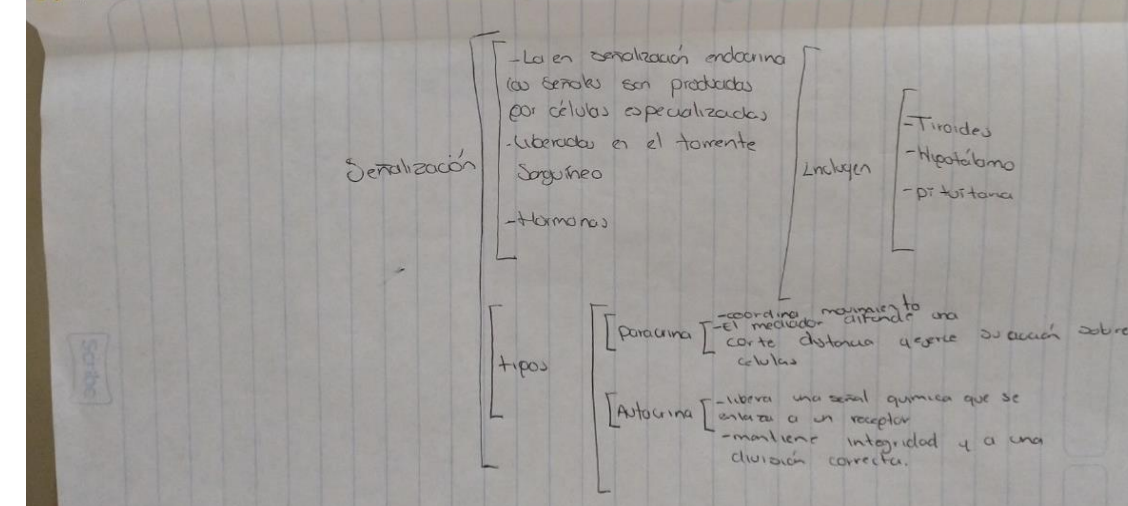 Señalización
-La en señalización endocrina
las señales son producidas
por células especializadas
-liberadas en el torrente
Sanguíneo
-Hormonas
Incluyen
-Tiroides
-Hipotálamo
-pituitaria
tipos
Paracrina
-coordina movimiento
-El mediador difunde una
corta distancia y ejerce su acción sobre
celulas
Autocrina
-libera una señal química que se
enlaza a un receptor
-mantiene integridad y a una
división correcta.
Scribe